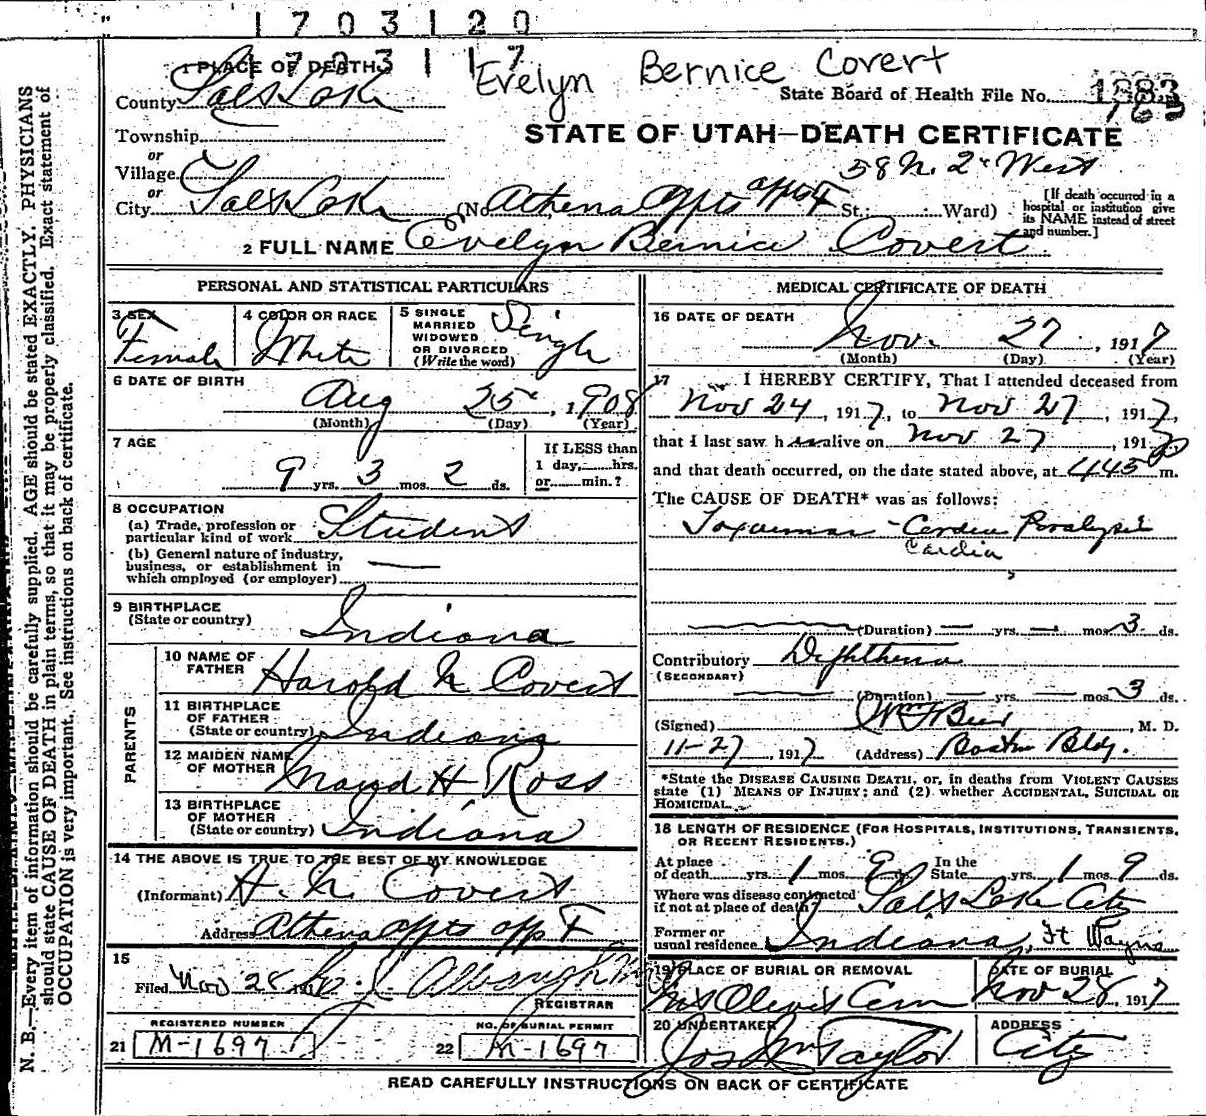 1703120
1703117
Evelyn Bernice Covert
1 PLACE OF DEATH
County Salt Lake
State Board of Health File No. 1883
163
Township
or
Village
or
City Salt Lake
STATE OF UTAH—DEATH CERTIFICATE
58 N. 2d West
(No. Athena Apts appt F St.; Ward)
[If death occurred in a hospital or institution give its NAME instead of street and number.]
2 FULL NAME Evelyn Bernice Covert
PERSONAL AND STATISTICAL PARTICULARS
3 SEX
Female
4 COLOR OR RACE
White
5 SINGLE
MARRIED
WIDOWED
OR DIVORCED
(Write the word)
Single
6 DATE OF BIRTH
Aug 25, 1908
(Month) (Day) (Year)
7 AGE
9 yrs. 3 mos. 2 ds.
If LESS than
1 day,......hrs.
or......min.?
8 OCCUPATION
(a) Trade, profession or
particular kind of work Student
(b) General nature of industry,
business, or establishment in
which employed (or employer) —
9 BIRTHPLACE
(State or country) Indiana
PARENTS
10 NAME OF
FATHER Harold N Covert
11 BIRTHPLACE
OF FATHER
(State or country) Indiana
12 MAIDEN NAME
OF MOTHER Maud H. Ross
13 BIRTHPLACE
OF MOTHER
(State or country) Indiana
14 THE ABOVE IS TRUE TO THE BEST OF MY KNOWLEDGE
(Informant) H. N. Covert
Address Athena Appts app F
15
Filed Nov 28 191
REGISTRAR
REGISTERED NUMBER
21 M-1697
NO. OF BURIAL PERMIT
22 M-1697
MEDICAL CERTIFICATE OF DEATH
16 DATE OF DEATH
Nov. 27, 1917
(Month) (Day) (Year)
17 I HEREBY CERTIFY, That I attended deceased from
Nov 24, 1917, to Nov 27, 1917,
that I last saw her alive on Nov 27, 1917
and that death occurred, on the date stated above, at 445 P m.
The CAUSE OF DEATH* was as follows:
Toxaemia - Cardiac Paralysis
Cardia
(Duration) — yrs. — mos. 3 ds.
Contributory Diphtheria
(SECONDARY)
(Duration) — yrs. — mos. 3 ds.
(Signed) Wm F Beer, M. D.
11-27, 1917 (Address) Boston Bldg.
*State the DISEASE CAUSING DEATH, or, in deaths from VIOLENT CAUSES
state (1) MEANS OF INJURY; and (2) whether ACCIDENTAL, SUICIDAL OR
HOMICIDAL.
18 LENGTH OF RESIDENCE (FOR HOSPITALS, INSTITUTIONS, TRANSIENTS,
OR RECENT RESIDENTS.)
At place
of death yrs. 1 mos. 9 ds. In the State yrs. 1 mos 9 ds.
Where was disease contracted
if not at place of death? Salt Lake City
Former or
usual residence Indiana, Ft Wayne
19 PLACE OF BURIAL OR REMOVAL
Mt Olivet Cem
DATE OF BURIAL
Nov 28, 1917
20 UNDERTAKER
Jos Wm Taylor
ADDRESS
City
READ CAREFULLY INSTRUCTIONS ON BACK OF CERTIFICATE
N. B.—Every item of information should be carefully supplied. AGE should be stated EXACTLY. PHYSICIANS
should state CAUSE OF DEATH in plain terms, so that it may be properly classified. Exact statement of
OCCUPATION is very important. See instructions on back of certificate.